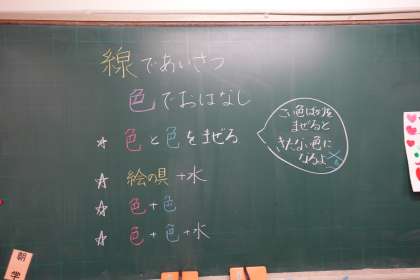 線であいさつ
色でおはなし
☆ 色と色をまぜる
こい色ばかりを
まぜると
きたない色に
なるよ
☆ 絵の具+水
☆ 色+色
☆ 色+色+水
朝
学